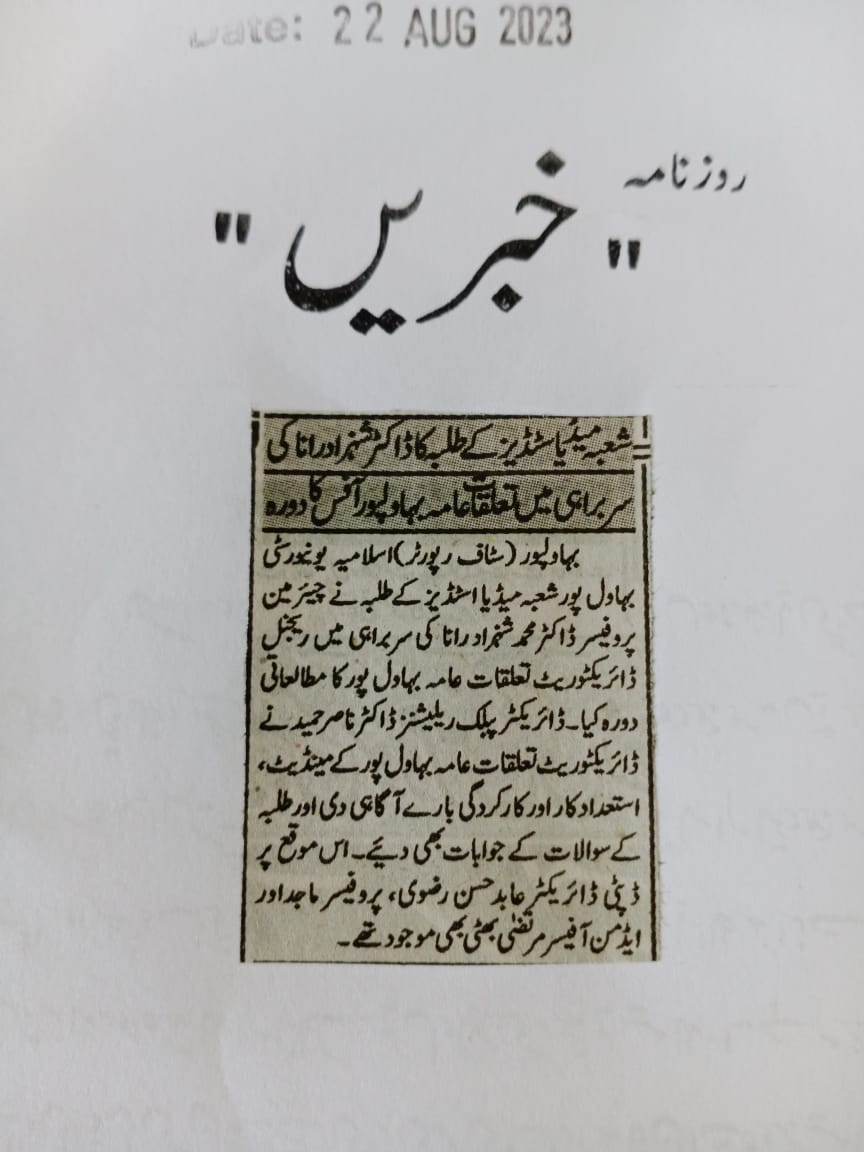 Date: 22 AUG 2023
روزنامہ
"خبریں"
شعبہ میڈیا سٹڈیز کے طلبہ کا ڈاکٹر شہزاد رانا کی
سربراہی میں تعلقات عامہ بہاولپور آفس کا دورہ
بہاولپور (سٹاف رپورٹر) اسلامیہ یونیورسٹی
بہاول پور شعبہ میڈیا اسٹڈیز کے طلبہ نے چیئرمین
پروفیسر ڈاکٹر محمد شہزاد رانا کی سربراہی میں ریجنل
ڈائریکٹوریٹ تعلقات عامہ بہاول پور کا مطالعاتی
دورہ کیا۔ ڈائریکٹر پبلک ریلیشنز ڈاکٹر ناصر حمید نے
ڈائریکٹوریٹ تعلقات عامہ بہاول پور کے مینڈیٹ،
استعداد کار اور کارکردگی بارے آگاہی دی اور طلبہ
کے سوالات کے جوابات بھی دیئے۔ اس موقع پر
ڈپٹی ڈائریکٹر عابد حسن رضوی، پروفیسر ماجد اور
ایڈمن آفیسر مرتضیٰ بھٹی بھی موجود تھے۔